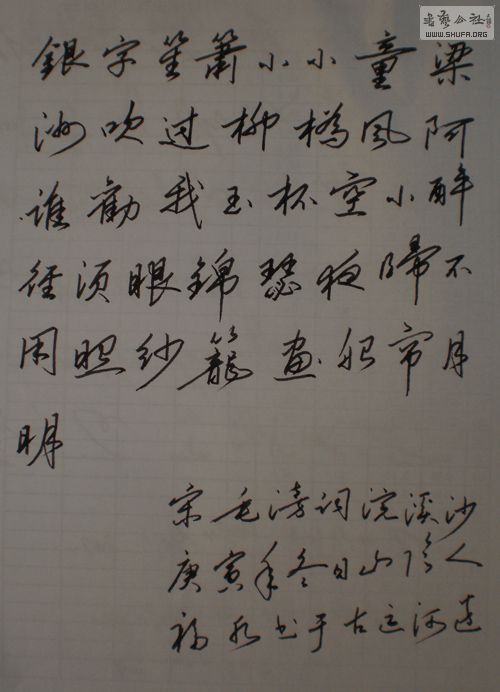 書藝公社
WWW.SHUFA.ORG
銀字笙簫小小童梁
洲吹过柳橋風阿
谁勸我玉杯空小醉
径须眠錦瑟夜歸不
用照纱籠画船帘月
明
宋毛滂词浣溪沙
庚寅年冬日山阴人
福书于古运河边